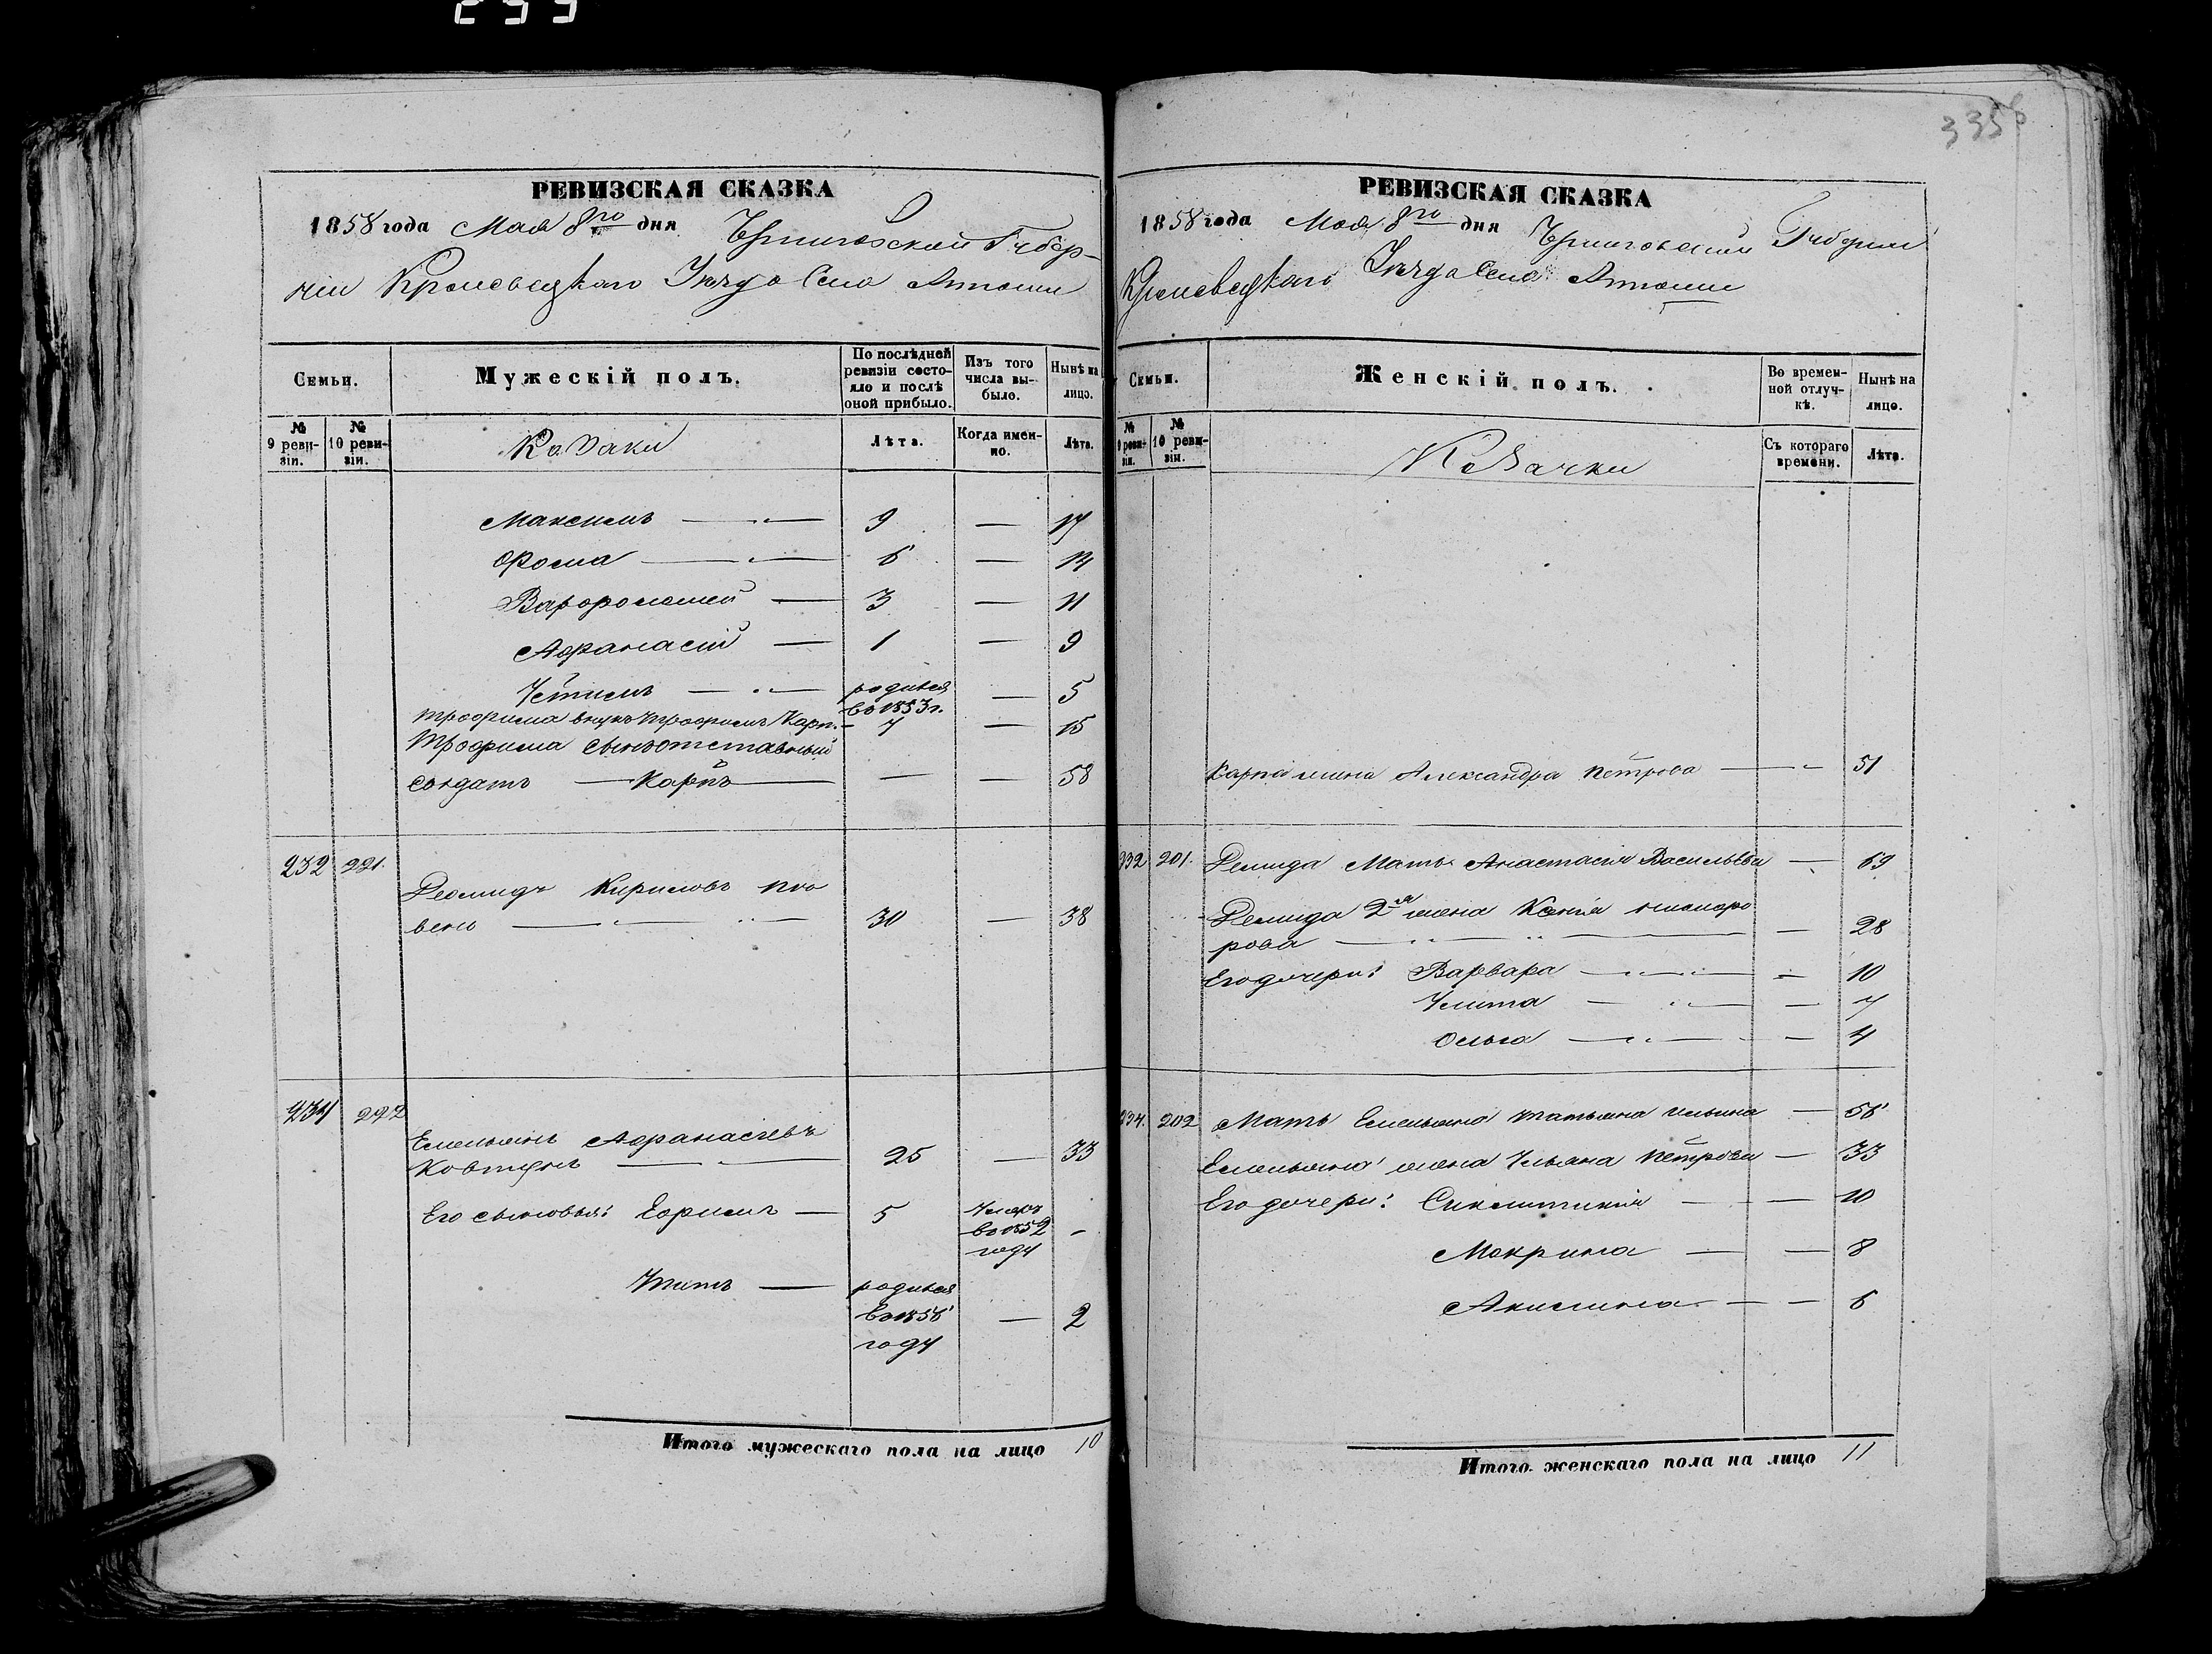 299
335б
РЕВИЗСКАЯ СКАЗКА
1858 года Мая 8го дня Черниговской Губер-
ніи Кролевецкаго Уѣзда Села
Семьи.
Мужескій полъ.
По послѣдней ревизіи состояло и послѣ оной прибыло.
Изъ того числа вы-было.
Нынѣ на лицо.
№ 9 реви-зіи.
№ 10 реви-зіи.
Козаки
Лѣта.
Когда имен-но.
Лѣта.
Максимъ — 9 — 17
Фома — 6 — 14
Варфоломей — 3 — 11
Афанасій — 1 — 9
Устимъ — родился во 1853 г. — 5
Трофима внукъ Трофимъ Карп. — 7 — 15
Трофима сынъ отставный
солдатъ — Карпъ — — — 58
232 221.
Деомидъ Кириловъ
вень — 30 — 38
234 222
Емельянъ Афанасіевъ
Ковтунъ — 25 — 33
Его сыновья: Ефимъ — 5 Умеръ во 1852 году -
Титъ — родился во 1856 году — 2
Итого мужескаго пола на лицо 10
РЕВИЗСКАЯ СКАЗКА
1858 года Мая 8го дня Черниговской Губерніи
Кролевецкаго Уѣзда Села
Семьи.
Женскій полъ.
Во времен-ной отлуч-кѣ.
Нынѣ на лицо.
№ 9 реви-зіи.
№ 10 реви-зіи.
Козачки
Съ котораго времени.
Лѣта.
Карпа жена Александра Петрова — 51
232 201. Демида Мать Анастасія Васильева — 69
Демида 2я жена Ксенія
рова — — 28
Его дочери: Варвара — — 10
Улита — — 7
Ольга — — 4
234. 202 Мать Емельяна Татьяна Ильина — 56
Емельяна жена Ульяна Петрова — 33
Его дочери: Синклитикія — — 10
Мокрина — — 8
Акилина — — 6
Итого женскаго пола на лицо 11